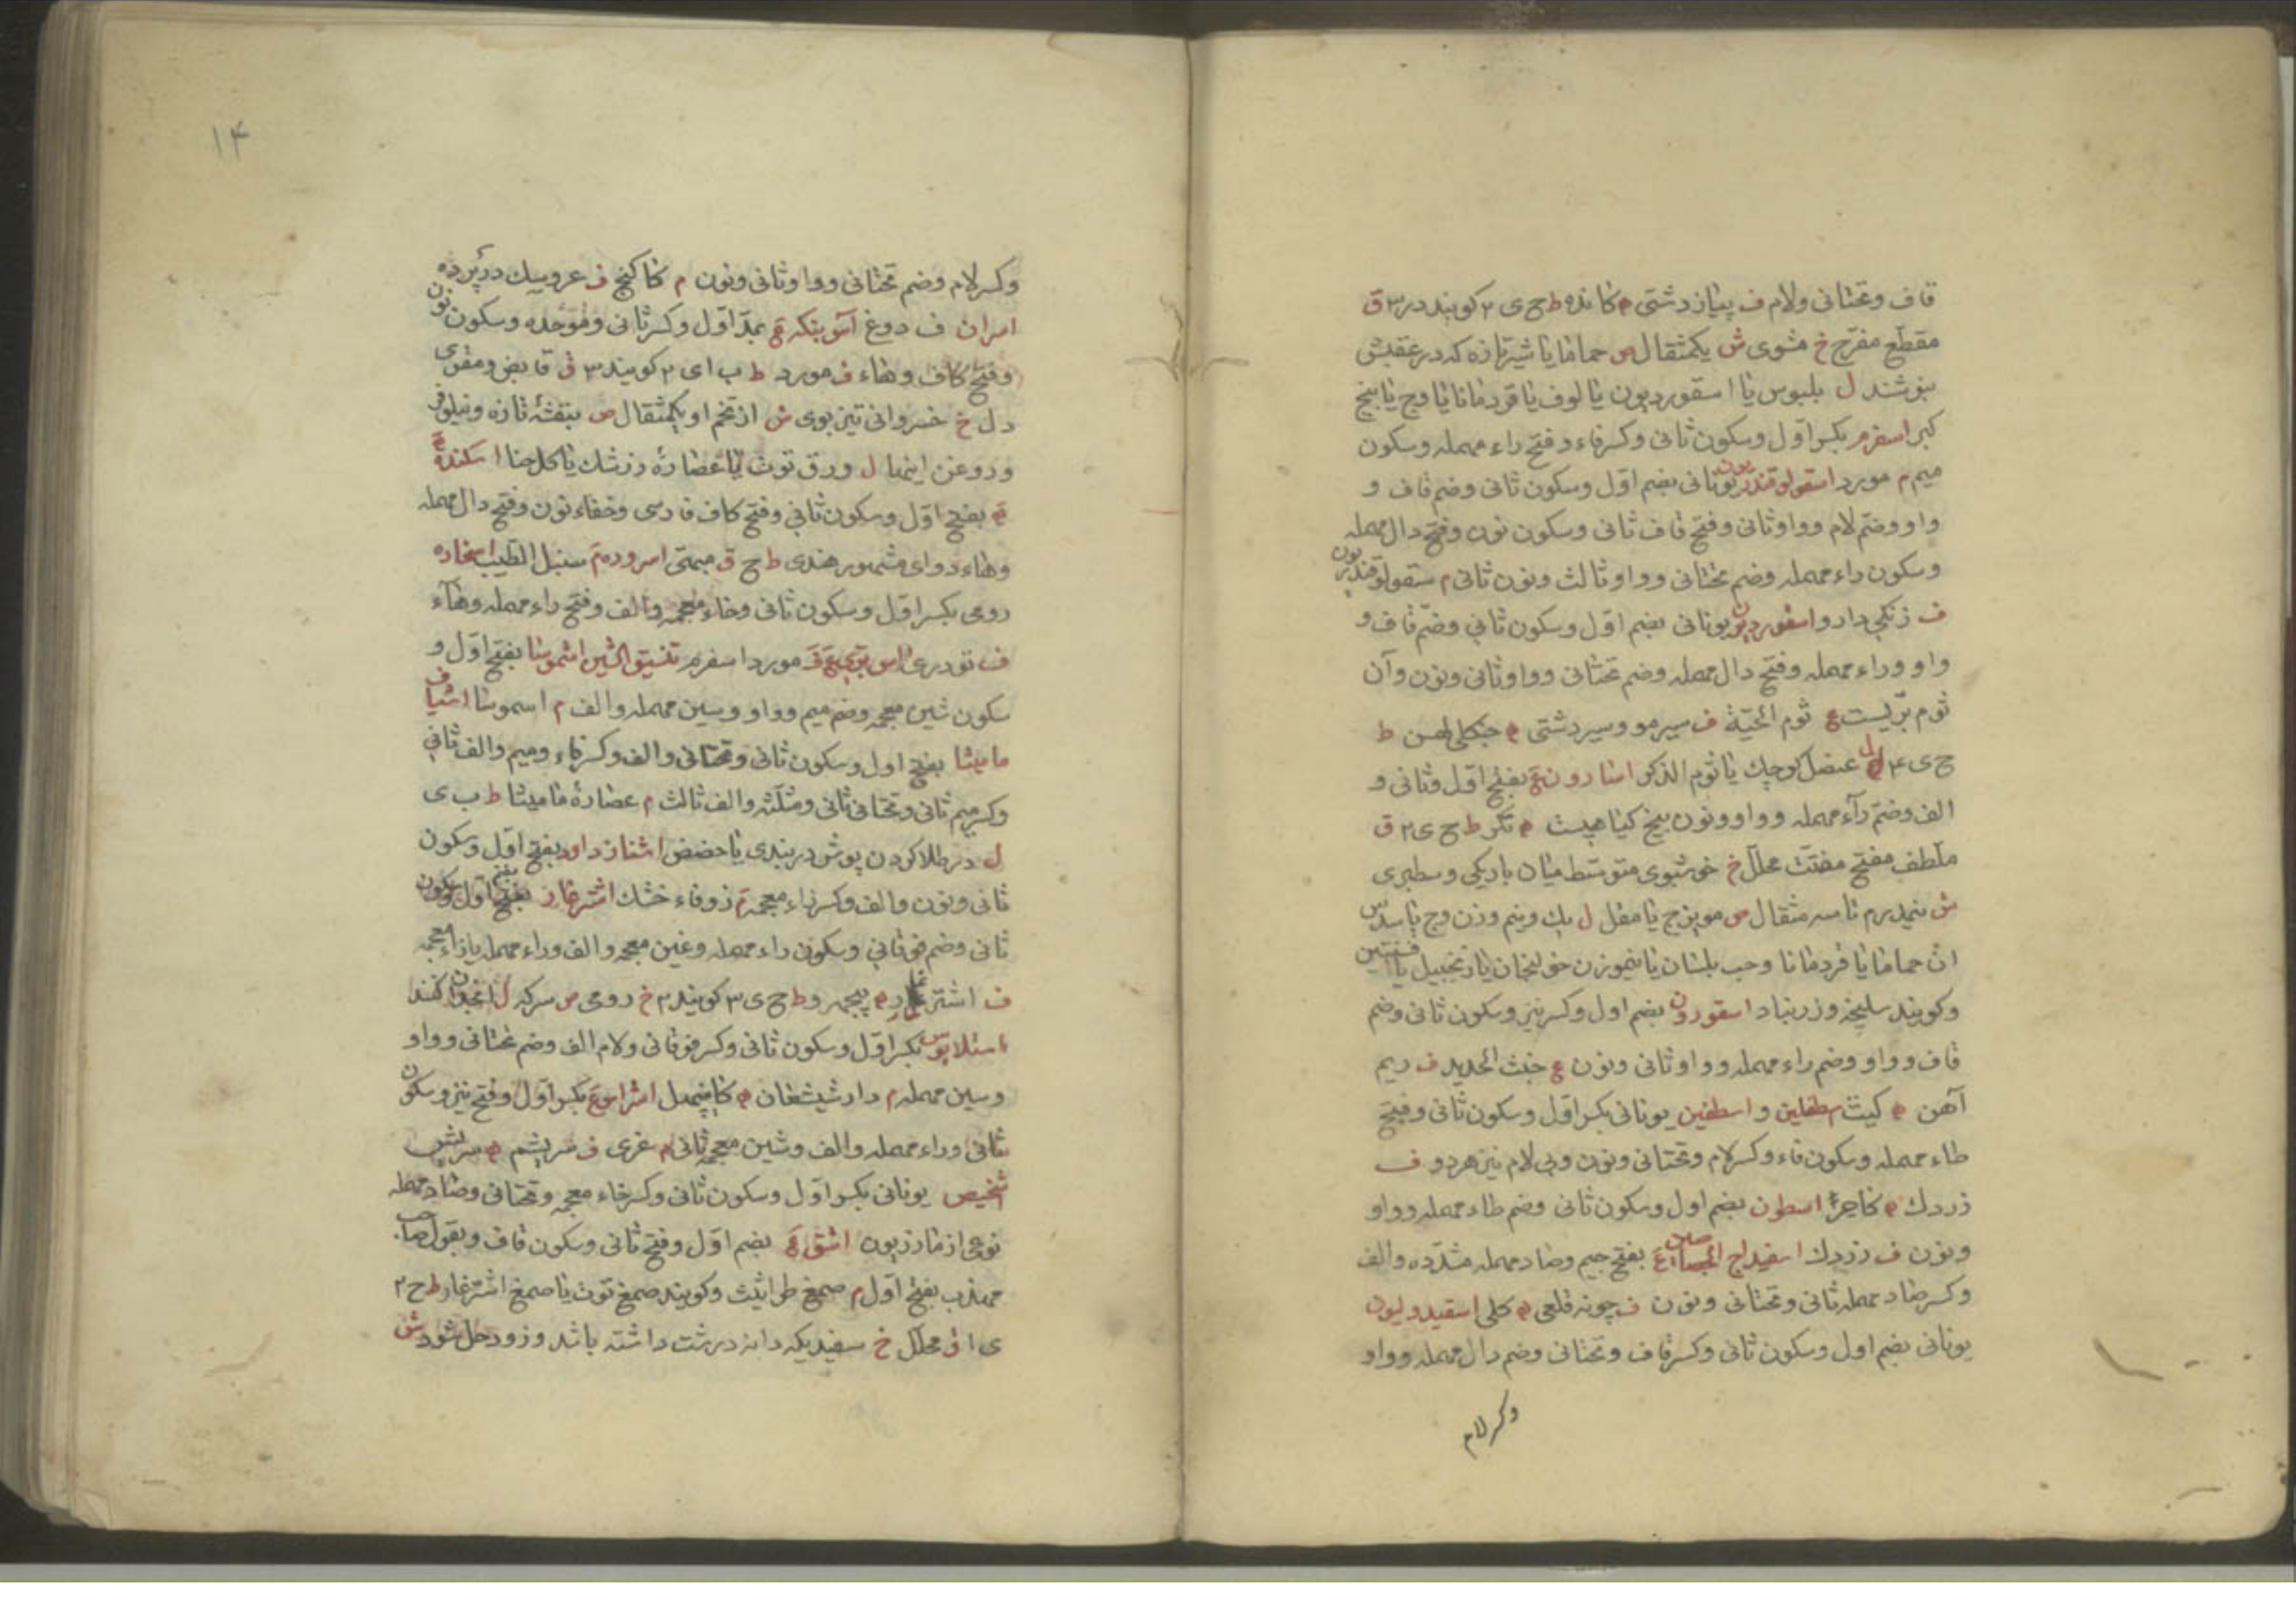 قاف وتحتانی ولام ف پیاز دشتی ه کانده ط ح ی ۲ کویند در ۳ ق
مقطع مفرح خ مشوی ش یکمثقال ص حماما یا شیر تازه که در عقبش
بنوشند ل بلبوس یا اسقوردیون یا لوف یا قردمانا یا وج یا بیخ
کبر اسفرم بکسر اول وسکون ثانی وکسر فاء و فتح راء مهمله وسکون
میم م مورد اسقولوقندریون یونانی بضم اول وسکون ثانی وضم قاف و
واو وضم لام وواو ثانی وفتح قاف ثانی وسکون نون وفتح دال مهمله
وسکون راء مهمله وضم تحتانی وواو ثالث ونون ثانی م سقولوقندریون
ف زنکی دارو اسقوردیون یونانی بضم اول وسکون ثانی وضم قاف و
واو وراء مهمله وفتح دال مهمله وضم تحتانی وواو ثانی ونون وآن
ثوم بریست ع ثوم الحیة ف سیر مو وسیر دشتی ه جنکلی لهسن ط
ح ی ۴ ل عنصل کوچک یا ثوم الذکر اسارون ع بفتح اول وثانی و
الف وضم راء مهمله وواو ونون بیخ کیاهیست ه تکر ط ح ی ۲ ق
ملطف مفتح مفتت محلل خ خوشبوی متوسط میان باریکی وسطبری
ش نیمدرم تا سه مثقال ص مویزج یا مقل ل یک ونیم وزن وج یا سدس
ان حماما یا قردمانا وحب بلسان یا نیموزن خولنجان یا زنجبیل یا افسنتین
وکویند سلیخه وزرنباد اسقورون بضم اول وکسر نیز وسکون ثانی وضم
قاف وواو وضم راء مهمله وواو ثانی ونون ع خبث الحدید ف ریم
آهن ه کیت سطفلین و اسطفین یونانی بکسر اول وسکون ثانی وفتح
طاء مهمله وسکون فاء وکسر لام وتحتانی ونون وبی لام نیز هردو ف
زردک ه کاجر اسطون بضم اول وسکون ثانی وضم طاء مهمله وواو
ونون ف زردک اسفیداج الجصاصین ع بفتح جیم وصاد مهمله مشدده والف
وکسر صاد مهمله ثانی وتحتانی ونون ف چونه قلعی ه کلی اسقیدولیون
یونانی بضم اول وسکون ثانی وکسر قاف وتحتانی وضم دال مهمله وواو
وکسر لام
۱۴
وکسر لام وضم تحتانی وواو ثانی ونون م کاکنج ف عروسک در پرده
امران ف دوغ بمد اول وکسر ثانی وموحده وسکون نون
وفتح کاف وهاء ف مورد ط ب ا ی ۲ کویند ۳ ق قابض ومقوی
دل خ خسروانی تیز بوی ش از تخم او یکمثقال ص بنفشه تازه ونیلوفر
وروغن اینها ل ورق توت یا عصاره زرشک یا کل حنا اسکنده
ه بفتح اول وسکون ثانی وفتح کاف فارسی وخفاء نون وفتح دال مهمله
وهاء دوای مشهور هندی ط ح ق مبهی م سنبل الطیب اسخاره
رومی بکسر اول وسکون ثانی وخاء معجمه والف وفتح راء مهمله وهاء
ف تودری مورد اسفرم اشموسا بفتح اول و
سکون شین معجمه وضم میم وواو وسین مهمله والف م اسموسا اشیاف
مامیثا بفتح اول وسکون ثانی وتحتانی والف وکسر فاء ومیم والف ثانی
وکسر میم ثانی وتحتانی ثانی ومثلثه والف ثالث م عصاره مامیثا ط ب ی
ل در طلا کردن پوش دربندی یا حضض اشنازداود بفتح اول وسکون
ثانی ونون والف وکسر زاء معجمه م زوفاء خشک اشترغاز بضم اول وسکون
ثانی وضم فوقانی وسکون راء مهمله وغین معجمه والف وراء مهمله یا زاء معجمه
ف اشترغار ه ط ح ی ۳ کویند ۲ خ رومی ص سرکه ل انجدان کنده
اسثلابوس بکسر اول وسکون ثانی وکسر فوقانی ولام الف وضم تحتانی وواو
وسین مهمله م دارشیشغان ه کایپهل اشراس ع بکسر اول وفتح نیز وسکون
ثانی وراء مهمله والف وشین معجمه ثانی م غری ف سریشم ه سریش
اشخیص یونانی بکسر اول وسکون ثانی وکسر خاء معجمه وتحتانی وصاد مهمله
نوعی از مازریون اشق ع بضم اول وفتح ثانی وسکون قاف وبقول صاحب
مهذب بفتح اول م صمغ طراثیث وکویند صمغ توث یا صمغ اشترغار ط ح ۲
ی ا ق محلل خ سفیدیکه دانه درشت داشته باشد وزود حل شود ش